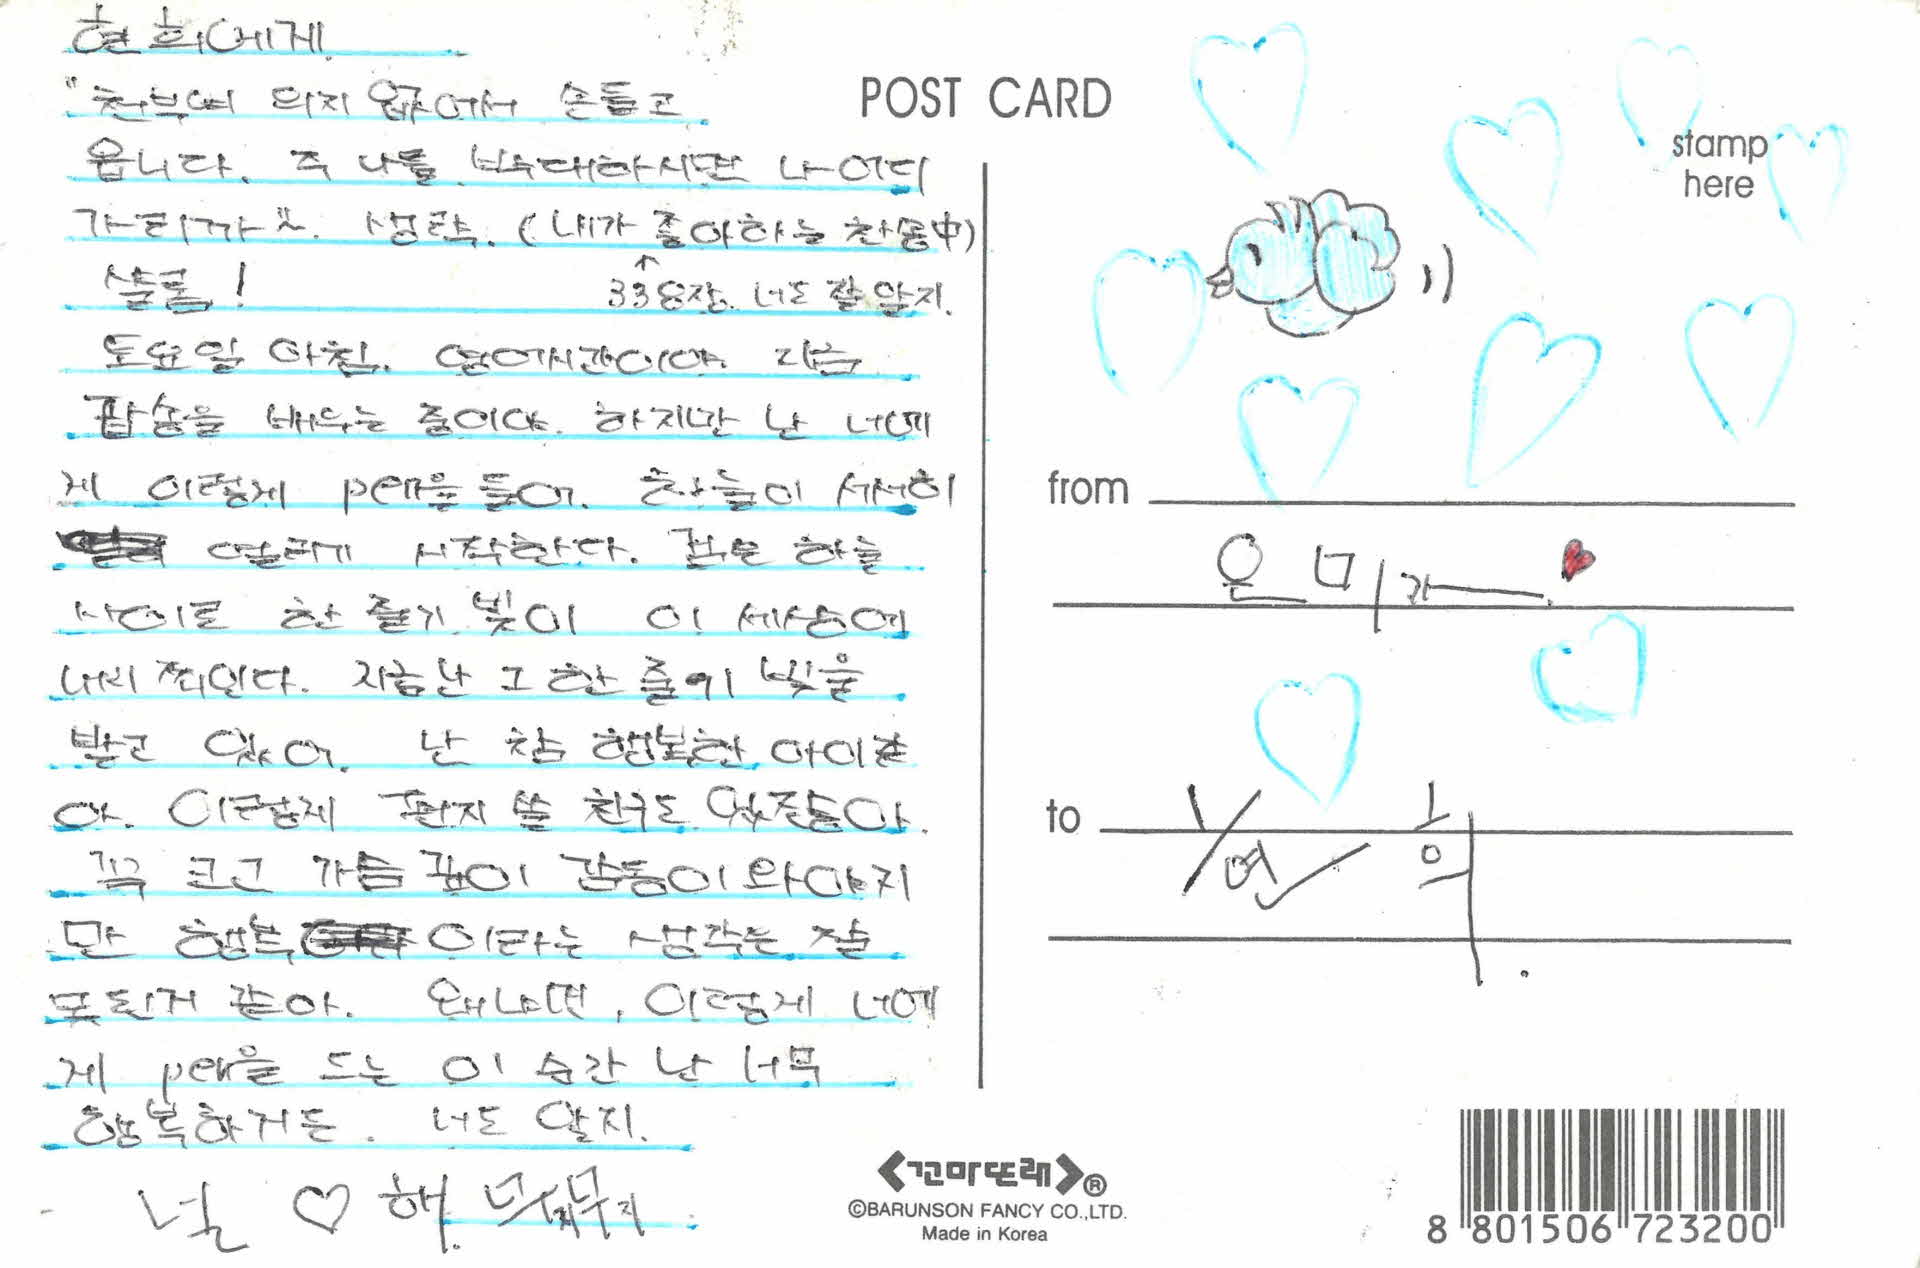 현희에게
"천부여 의지 없어서 손들고
옵니다. 주 나를 박대하시면 나 어디
가리까"~. 생략. (내가 좋아하는 찬송中)
샬롬! 338장. 너도 잘 알지.
토요일 아침. 영어시간이야. 지금
팝송을 배우는 중이야. 하지만 난 너에
게 이렇게 pen을 들어. 하늘이 서서히
열리기 시작한다. 검은 하늘
사이로 한 줄기 빛이 이 세상에
내리 쬐인다. 지금 난 그 한 줄기 빛을
받고 있어. 난 참 행복한 아이 같
아. 이렇게 편지 쓸 친구도 있잖아.
꼭 크고 가슴 깊이 감동이 와야지
만 행복 이라는 생각은 잘
못된거 같아. 왜냐면, 이렇게 너에
게 pen을 드는 이 순간 난 너무
행복하거든. 너도 알지.
널 ♡해. 무지무지
POST CARD
stamp
here
from
은미가. ♥
to
현희.
<꼬마또래>®
©BARUNSON FANCY CO.,LTD.
Made in Korea
8 801506 723200